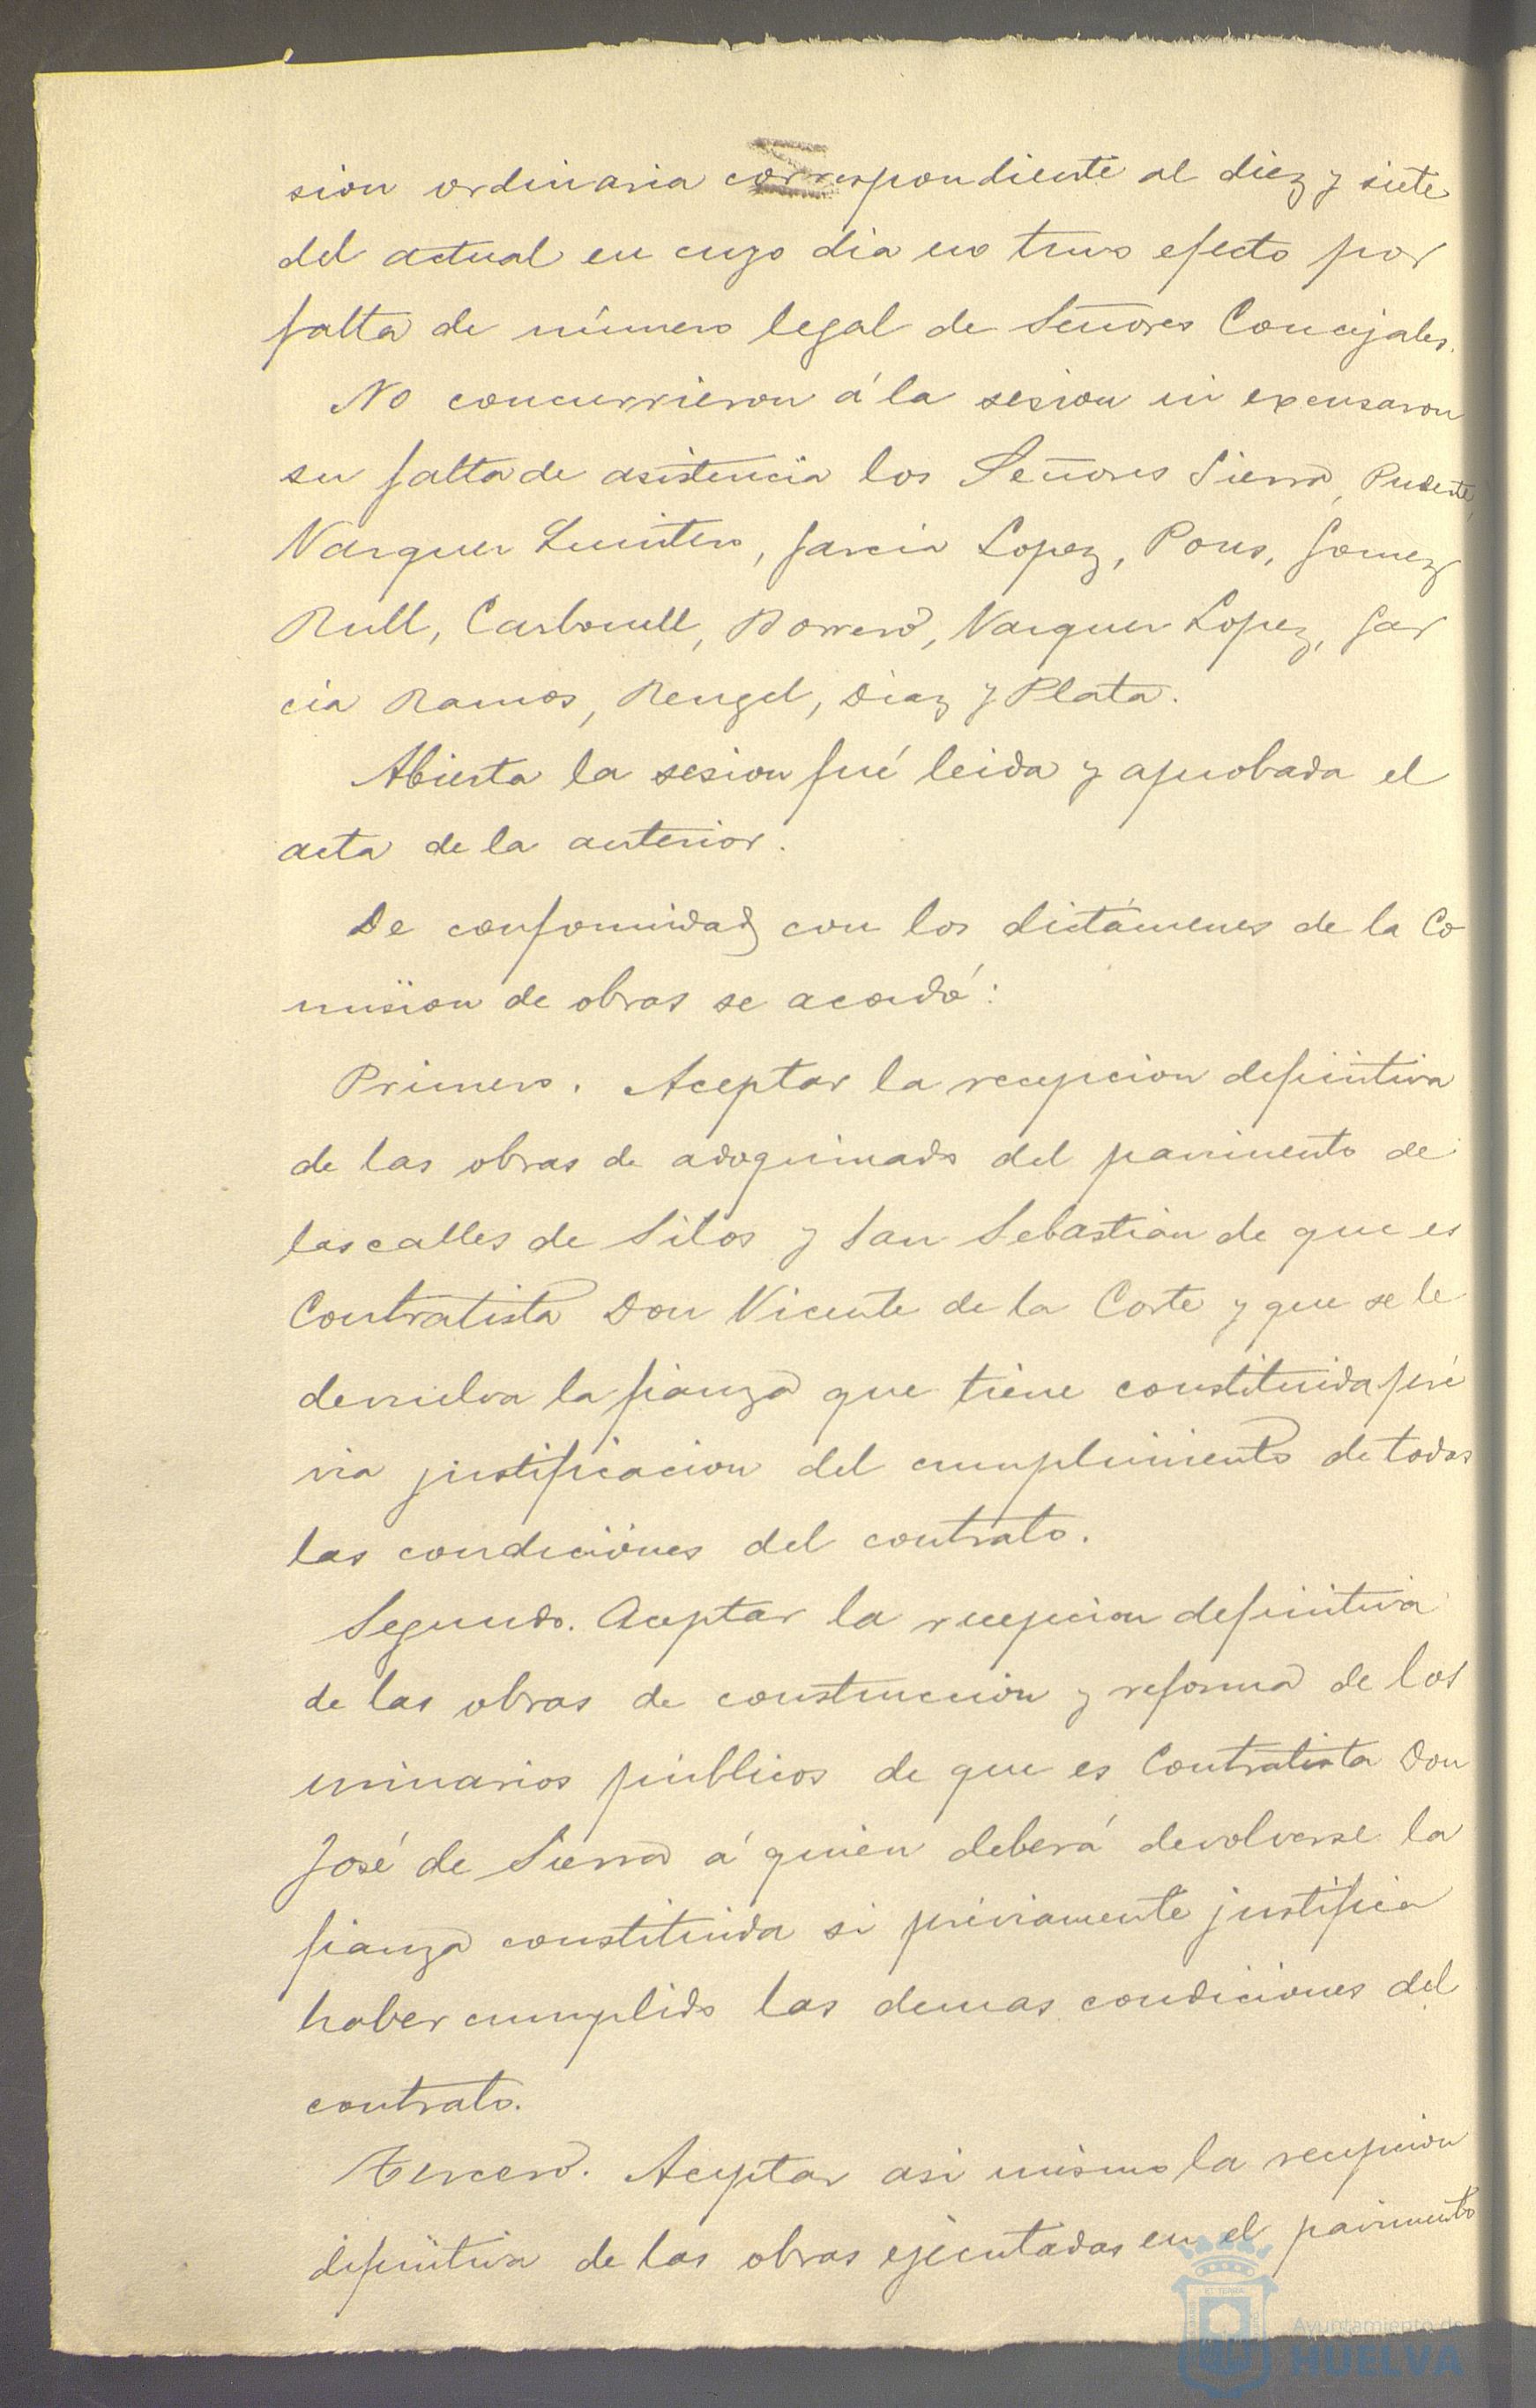 sion ordinaria correspondiente al diez y siete
del actual en cuyo dia no tuvo efecto por
falta de número legal de Señores Concejales.
No concurrieron á la sesion ni excusaron
su falta de asistencia los Señores Sierra,
Vazquez Quintero, Garcia Lopez, Pons, Gomez
Rull, Carbonell, Borrero, Vazquez Lopez, Gar
cia Ramos, Rengel, Diaz y Plata.
Abierta la sesion fué leida y aprobada el
acta de la anterior.
De conformidad con los dictámenes de la Co
mision de obras se acordó:
Primero. Aceptar la recepcion definitiva
de las obras de adoquinado del pavimento de
las calles de Silos y San Sebastián de que es
Contratista Don Vicente de la Corte y que se le
devuelva la fianza que tiene constituida pré
via justificacion del cumplimiento de todas
las condiciones del contrato.
Segundo. Aceptar la recepcion definitiva
de las obras de construccion y reforma de los
urinarios públicos de que es Contratista Don
José de Sierra á quien deberá devolverse la
fianza constituida si préviamente justifica
haber cumplido las demas condiciones del
contrato.
Tercero. Aceptar asi mismo la recepcion
difinitiva de las obras ejecutadas en el pavimento
Ayuntamiento de
HUELVA